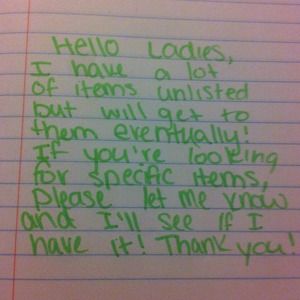 Hello Ladies,
I have a lot
of items unlisted
but will get to
them eventually!
If you're looking
for specific items,
please let me know
and I'll see if I
have it! Thank you!